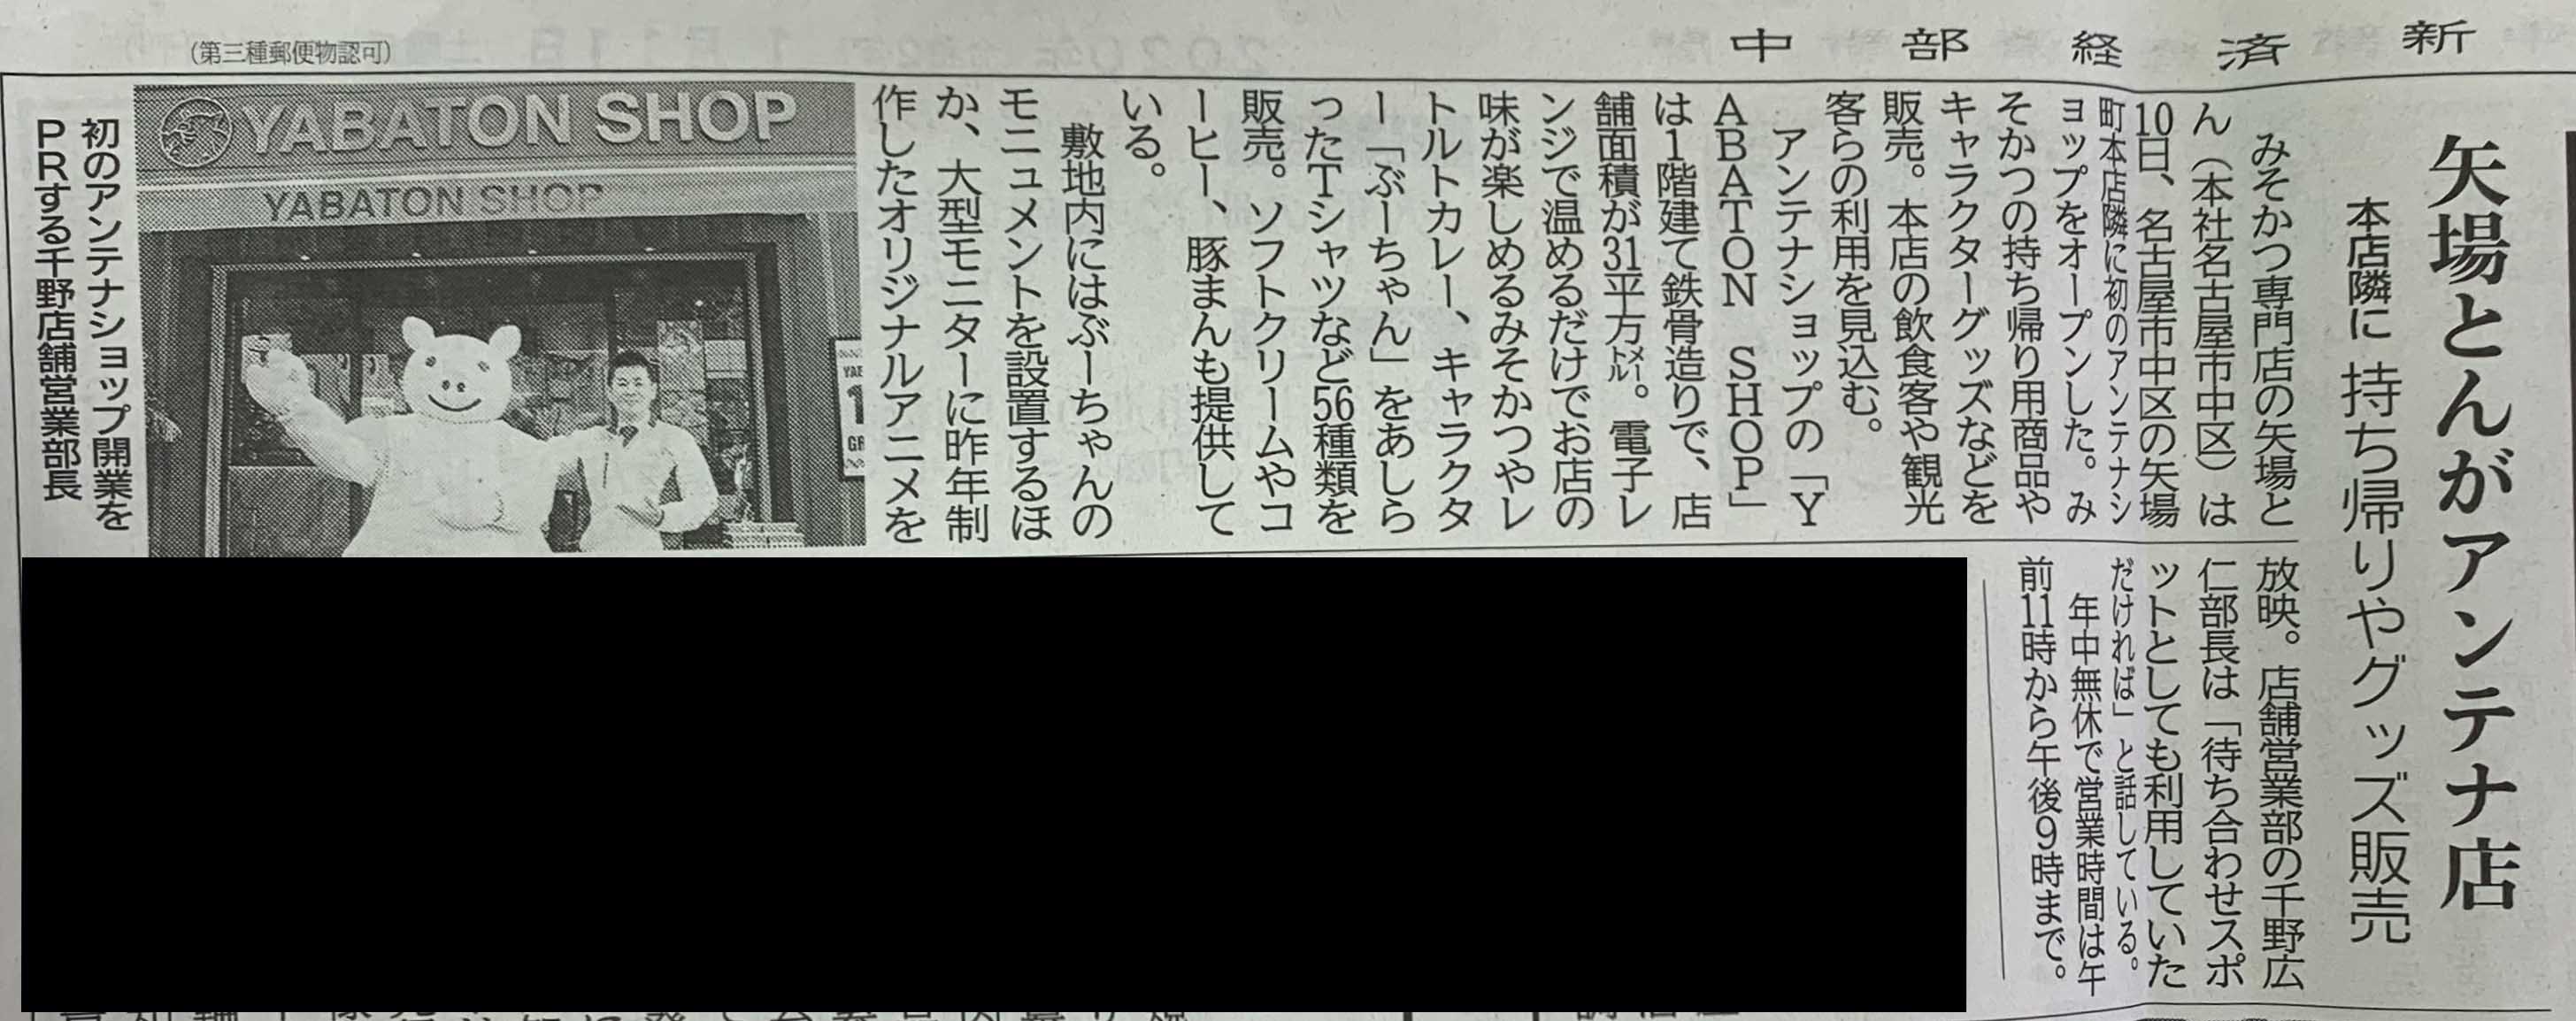 中部経済新
(第三種郵便物認可)
矢場とんがアンテナ店
本店隣に 持ち帰りやグッズ販売
みそかつ専門店の矢場と
ん(本社名古屋市中区)は
10日、名古屋市中区の矢場
町本店隣に初のアンテナシ
ョップをオープンした。み
そかつの持ち帰り用商品や
キャラクターグッズなどを
販売。本店の飲食客や観光
客らの利用を見込む。
アンテナショップの「Y
ABATON SHOP」
は1階建て鉄骨造りで、店
舗面積が31平方㍍。電子レ
ンジで温めるだけでお店の
味が楽しめるみそかつやレ
トルトカレー、キャラクタ
ー「ぶーちゃん」をあしら
ったTシャツなど56種類を
販売。ソフトクリームやコ
ーヒー、豚まんも提供して
いる。
敷地内にはぶーちゃんの
モニュメントを設置するほ
か、大型モニターに昨年制
作したオリジナルアニメを
放映。店舗営業部の千野広
仁部長は「待ち合わせスポ
ットとしても利用していた
だければ」と話している。
年中無休で営業時間は午
前11時から午後9時まで。
YABATON SHOP
YABATON SHOP
初のアンテナショップ開業を
PRする千野店舗営業部長